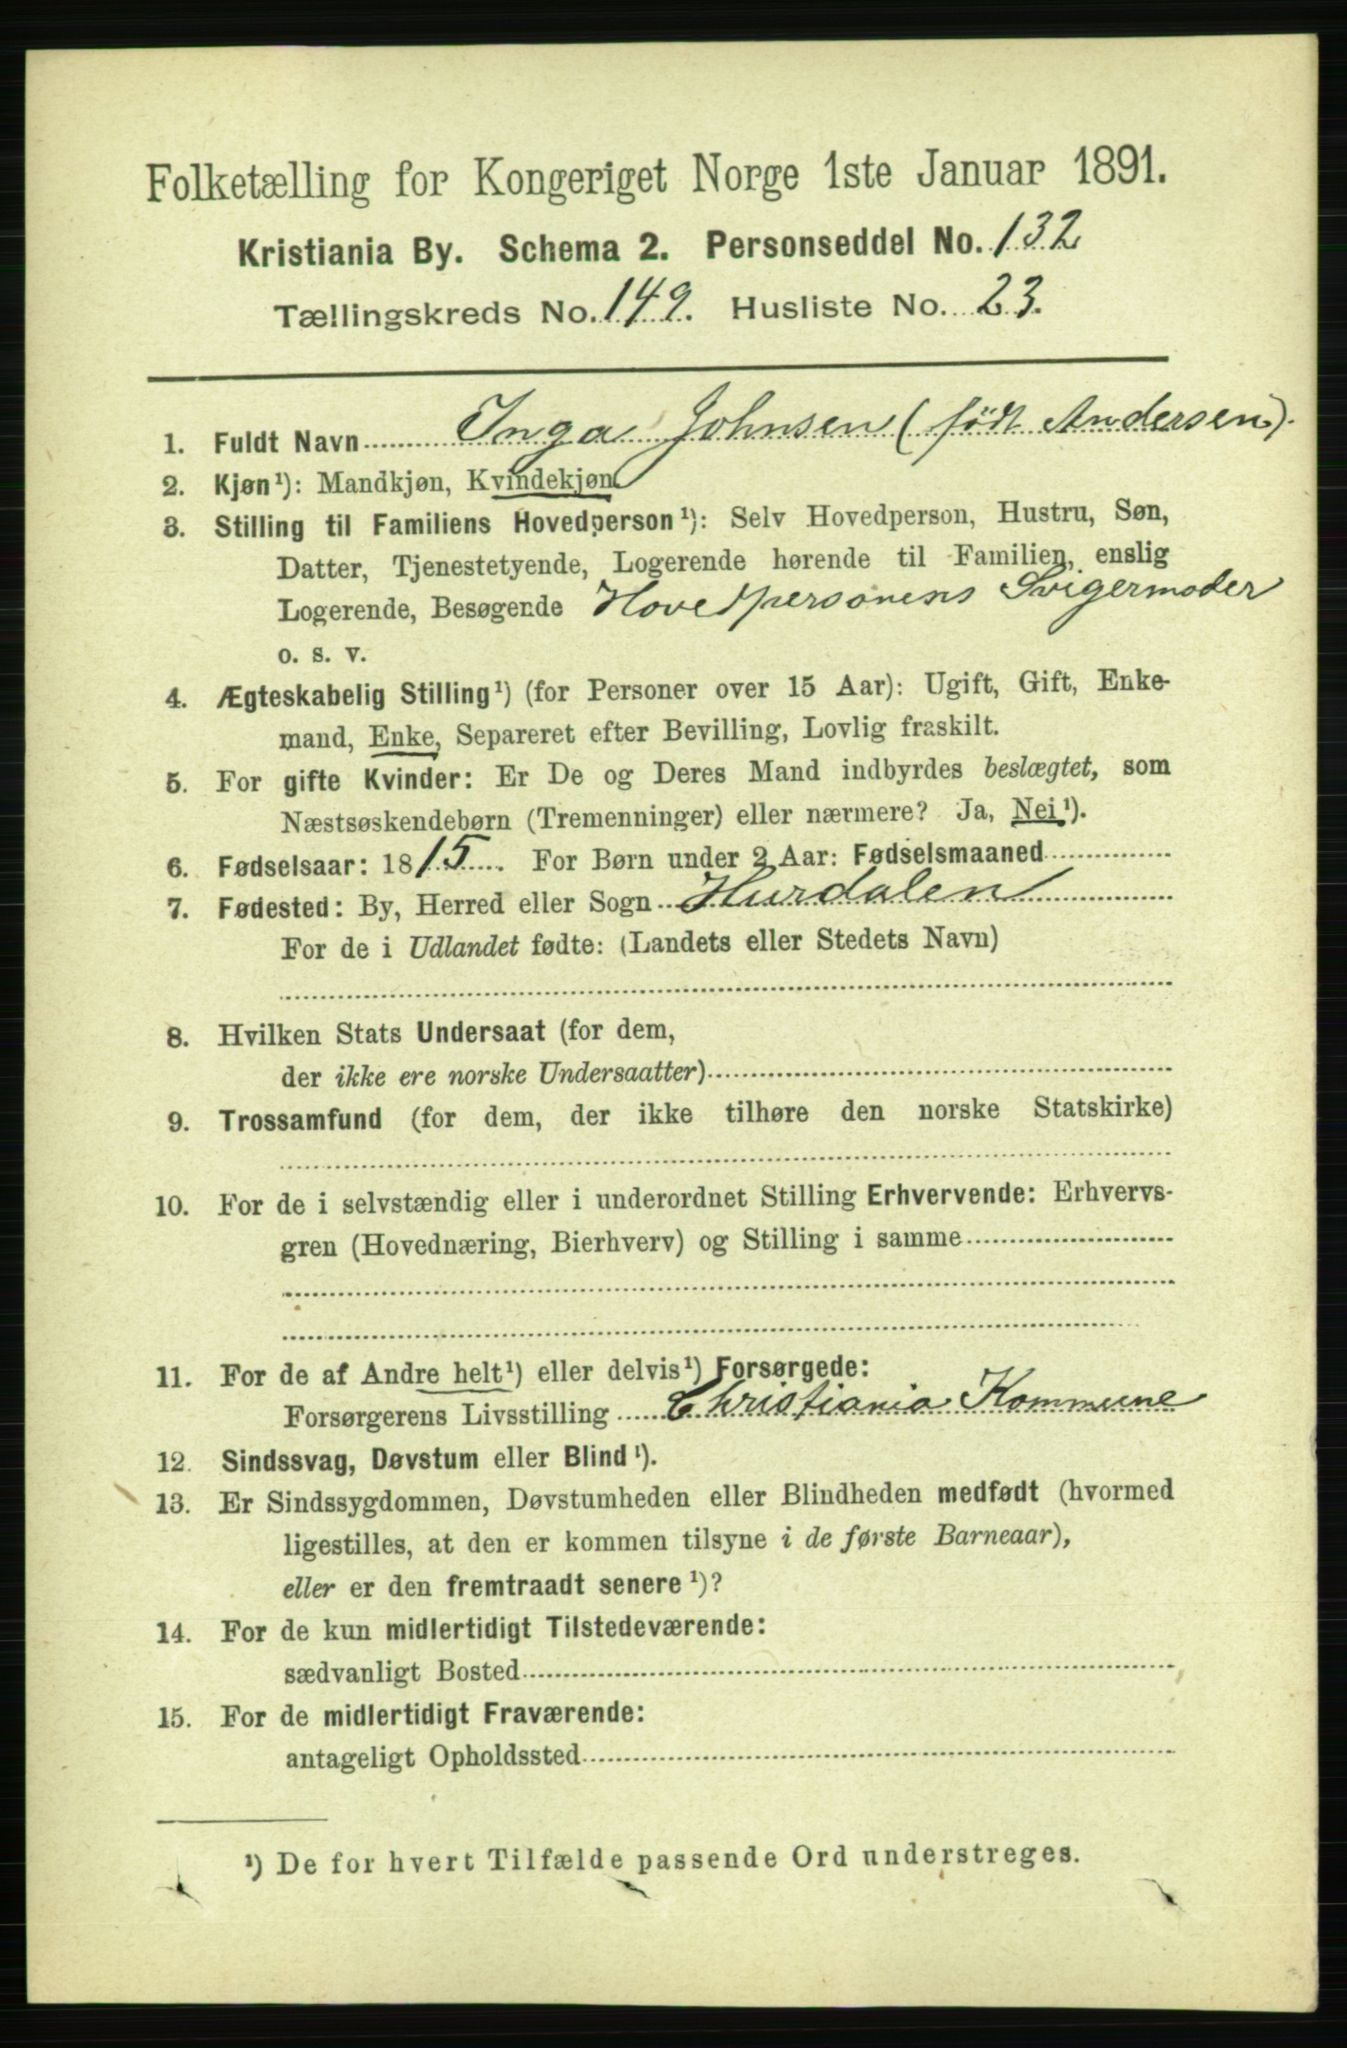 Folketælling for Kongeriget Norge 1ste Januar 1891.
Kristiania By. Schema 2. Personseddel No. 132
Tællingskreds No. 149. Husliste No. 23.
1. Fuldt Navn Inga Johnsen (født Andersen).
2. Kjøn¹): Mandkjøn, Kvindekjøn
3. Stilling til Familiens Hovedperson¹): Selv Hovedperson, Hustru, Søn,
Datter, Tjenestetyende, Logerende hørende til Familien, enslig
Logerende, Besøgende Hovedpersonens Svigermoder
o. s. v.
4. Ægteskabelig Stilling¹) (for Personer over 15 Aar): Ugift, Gift, Enke-
mand, Enke, Separeret efter Bevilling, Lovlig fraskilt.
5. For gifte Kvinder: Er De og Deres Mand indbyrdes beslægtet, som
Næstsøskendebørn (Tremenninger) eller nærmere? Ja, Nei¹).
6. Fødselsaar: 1815. For Børn under 2 Aar: Fødselsmaaned
7. Fødested: By, Herred eller Sogn Hurdalen
For de i Udlandet fødte: (Landets eller Stedets Navn)
8. Hvilken Stats Undersaat (for dem,
der ikke ere norske Undersaatter)
9. Trossamfund (for dem, der ikke tilhøre den norske Statskirke)
10. For de i selvstændig eller i underordnet Stilling Erhvervende: Erhvervs-
gren (Hovednæring, Bierhverv) og Stilling i samme
11. For de af Andre helt¹) eller delvis¹) Forsørgede:
Forsørgerens Livsstilling Christiania Kommune
12. Sindssvag, Døvstum eller Blind¹).
13. Er Sindssygdommen, Døvstumheden eller Blindheden medfødt (hvormed
ligestilles, at den er kommen tilsyne i de første Barneaar),
eller er den fremtraadt senere¹)?
14. For de kun midlertidigt Tilstedeværende:
sædvanligt Bosted
15. For de midlertidigt Fraværende:
antageligt Opholdssted
¹) De for hvert Tilfælde passende Ord understreges.